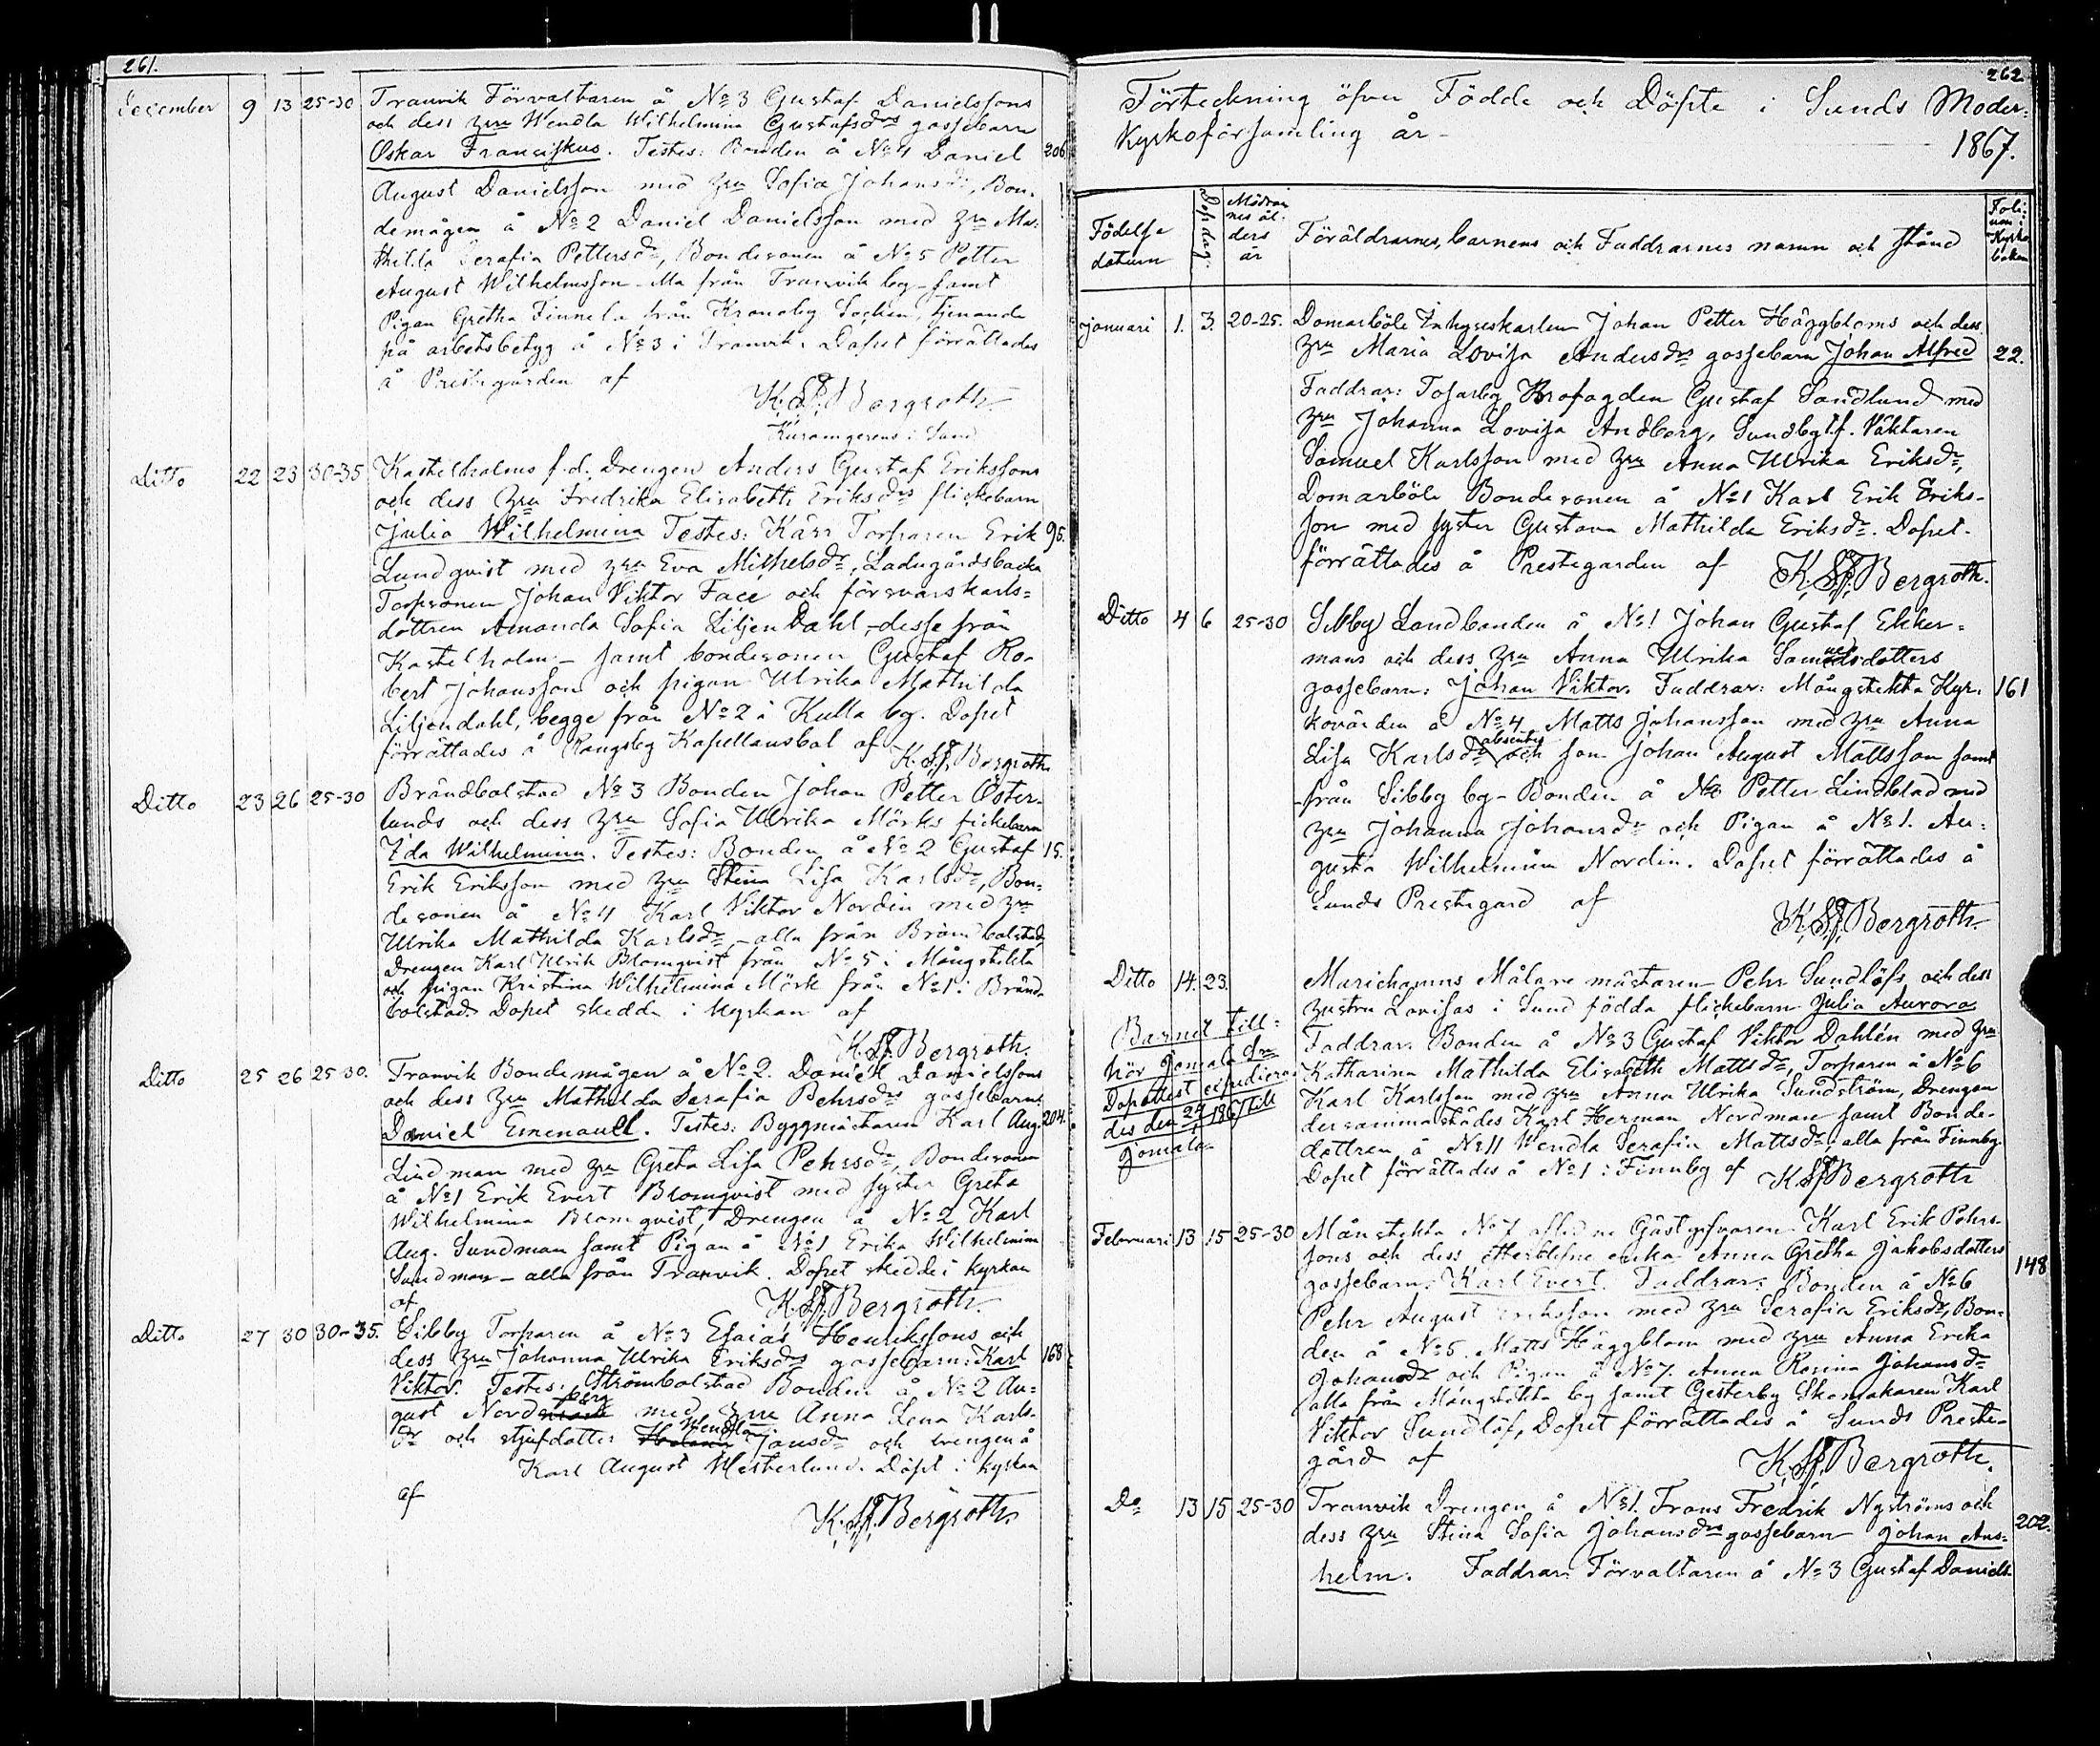 261.
December 9 13 25-30 Tranvik Förvaltaren å No 3 Gustaf Danielssons
och dess hru Wendla Wilhelmina Gustafsdrs gossebarn
Oskar Fransiskus. Testes: Bonden å No 4 Daniel 206
August Danielsson med hru Sofia Johansdr, Bon-
demågen å No 2 Daniel Danielsson med hru Ma-
thilda Serafia Pettersdr, Bondesonen å No 5 Petter
August Wilhelmsson - alla från Tranvik by - samt
Pigan Gretha Finnela från Kronoby Socken, tjenande
på arbetsbetyg å No 3 i Tranvik. Dopet förrättades
å Prestgården af
K. Sf. Bergroth
i Sund
Ditto 22 23 30-35 Kastelholms f.d. Drengen Anders Gustaf Erikssons
och dess hru Fredrika Elisabeth Eriksdrs flickebarn
Julia Wilhelmina Testes: Kärr Torparen Erik 95.
Lundqvist med hru Eva Mikhelsdr, Ladugårdsbacka
Torpsonen Johan Viktor Face och försvarskarls-
dottren Amanda Sofia Liljendahl, - desse från
Kastelholm - samt bondesonen Gustaf Ro-
bert Johansson och pigan Ulrika Mathilda
Liljendahl, begge från No 2 i Kulla by. Dopet
förrättades å Rangsby Kapellansbol af K. Sf. Bergroth
Ditto 23 26 25-30 Brändbolstad No 3 Bonden Johan Petter Öster-
lunds och dess hru Sofia Ulrika Mörks fickebarn
Ida Wilhelmina. Testes: Bonden å No 2 Gustaf 15.
Erik Eriksson med hru Stina Lisa Karlsdr, Bon-
desonen å No 4 Karl Viktor Nordin med hru
Ulrika Mathilda Karlsdr - alla från Brändbolstad,
Drengen Karl Ulrik Blomqvist från No 5 i Mångstekta
och pigan Kristina Wilhelmina Mörk från No 1 i Bränd-
bolstad. Dopet skedde i Kyrkan af
K. Sf. Bergroth.
Ditto 25 26 25-30. Tranvik Bondemågen å No 2. Daniel Danielssons
och dess hru Mathilda Serafia Pehrsdrs gossebarn:
Daniel Emenauel. Testes: Byggmästaren Karl Aug. 204.
Lindman med hru Greta Lisa Pehrsdr, Bondesonen
å No 1 Erik Evert Blomqvist med syster Greta
Wilhelmina Blomqvist, Drengen å No 2 Karl
Aug. Sundman samt Pigan å No 1 Erika Wilhelmina
Sundman - alla från Tranvik. Dopet skedde i kyrkan
af K. Sf. Bergroth.
Ditto 27 30 30-35. Sibby Torparen å No 3 Esaias Henrikssons och
dess hru Johanna Ulrika Eriksdrs gossebarn: Karl 168
Viktor. Testes: Strömbolstad Bonden å No 2 Au-
gust Nordberg med hru Anna Lena Karls-
dr och stjufdotter Wendla Jansdr och drengen å
Karl August Westerlund. Döpt i kyrkan
af
K. Sf. Bergroth.
262
Förteckning öfver Födde och Döpte i Sunds Moder-
Kyrkoförsamling år -
1867.
Födelse datum
Dop dag.
Mödrarnes ålders år
Föräldrarnes, barnens och Faddrarnes namn och stånd
Folium i Kyrkoboken
Januari 1. 3. 20-25. Domarböle Inhyseskarlen Johan Petter Häggbloms och dess
hru Maria Lovisa Andersdrs gossebarn Johan Alfred 22.
Faddrar: Tosarby Krofogden Gustaf Sandlund med
hru Johanna Lovisa Andberg, Sundby t.f. Väktaren
Samuel Karlsson med hru Anna Ulrika Eriksdr,
Domarböle Bondesonen å No 1 Karl Erik Eriks-
son med syster Gustava Mathilda Eriksdr. Dopet
förrättades å Prestegarden af K. Sf. Bergroth.
Ditto 4 6 25-30 Sibby Landbonden å No 1 Johan Gustaf Ekker-
mans och dess hru Anna Ulrika Samuelsdotters
gossebarn: Johan Viktor. Faddrar: Mångstekta Kyr- 161
kovärden å No 4 Matts Johansson med hru Anna
Lisa Karlsdr absentis och son Johan August Mattsson samt
- från Sibby by - Bonden å No Petter Lindblad med
hru Johanna Johansdr och Pigan å No 1. Au-
gusta Wilhelmina Nordin. Dopet förrättades å
Sunds Prestegard af
K. Sf. Bergroth.
Ditto 14. 23. Mariehamns Målare mästaren Pehr Sundlöfs och dess
hustru Lovisas i Sund födda flickebarn Julia Aurora
Barnet till-
hör Jomala
Dopattest expediera-
des den 24/ 1867 till
Jomala
Faddrar: Bonden å No 3 Gustaf Viktor Dahlén med hru
Katharina Mathilda Elisabeth Mattsdr, Torparen å No 6
Karl Karlsson med hru Anna Ulrika Sundström, Drengen
dersammastädes Karl Herman Nordman samt Bonde-
dottren å No 11 Wendla Serafia Mattsdr, alla från Finnby.
Dopet förrättades å No 1 i Finnby af K. Sf. Bergroth
Februari 13 15 25-30 Månstekta No 7 Aflidne Gästgifvaren Karl Erik Pehrs-
sons och dess efterblefne enka Anna Gretha Jakobsdotters
gossebarn: Karl Evert. Faddrar: Bonden å No 6 148
Pehr August Eriksson med hru Serafia Eriksdr, Bon-
den å No 5. Matts Häggblom med hru Anna Erika
Johansdr och Pigan å No 7. Anna Rosina Johansdr
alla från Mångstekta by samt Gesterby Skomakaren Karl
Viktor Sundlöf, Dopet förrättades å Sunds Preste-
gård af
K. Sf. Bergroth.
Do 13 15 25-30 Tranvik Drengen å No 1. Frans Fredrik Nyströms och
dess hru Stina Sofia Johansdrs gossebarn Johan Ans- 202.
helm. Faddrar: Förvaltaren å No 3 Gustaf Daniels-